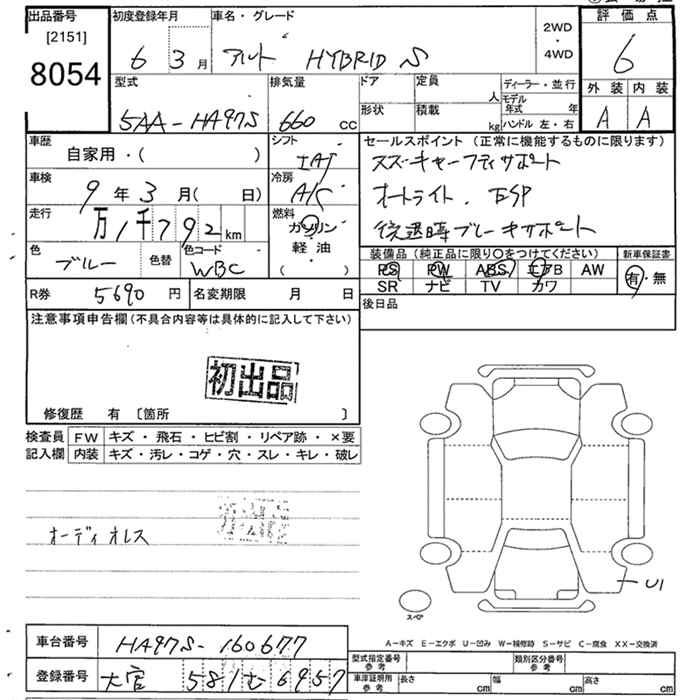 出品番号
[2151]
8054
初度登録年月
6 3月
車名・グレード
アルト HYBRID S
2WD
・
4WD
評価点
6
外装 内装
A A
型式
5AA-HA97S
排気量
660 CC
ドア
定員
人
形状
積載
kg
ディーラー・並行
モデル年式 年
ハンドル 左・右
車歴
自家用・( )
シフト
IAT
車検
9年3月( 日)
冷房
A/C
走行
万1千792 km
燃料
ガソリン
軽・油
( )
色
ブルー
色替
色コード
WBC
セールスポイント(正常に機能するものに限ります)
スズキセーフティサポート
オートライト．ESP
後退時ブレーキサポート
装備品(純正品に限り〇をつけてください)
PS PW ABS エアB AW
SR ナビ TV カワ
新車保証書
有・無
R券 5690円
名変期限 月 日
後日品
注意事項申告欄(不具合内容等は具体的に記入して下さい)
初出品
修復歴 有 [箇所 ]
検査員記入欄
FW キズ・飛石・ヒビ割・リペア跡・×要
内装 キズ・汚レ・コゲ・穴・スレ・キレ・破レ
オーディオレス
U1
スペア
A－キズ E－エクボ U－凹み W－補修跡 S－サビ C－腐食 XX－交換済
車台番号 HA97S-160677
登録番号 大宮 581む6957
型式指定番号 参考
類別区分番号 参考
車庫証明用 参考
長さ cm 幅 cm 高さ cm